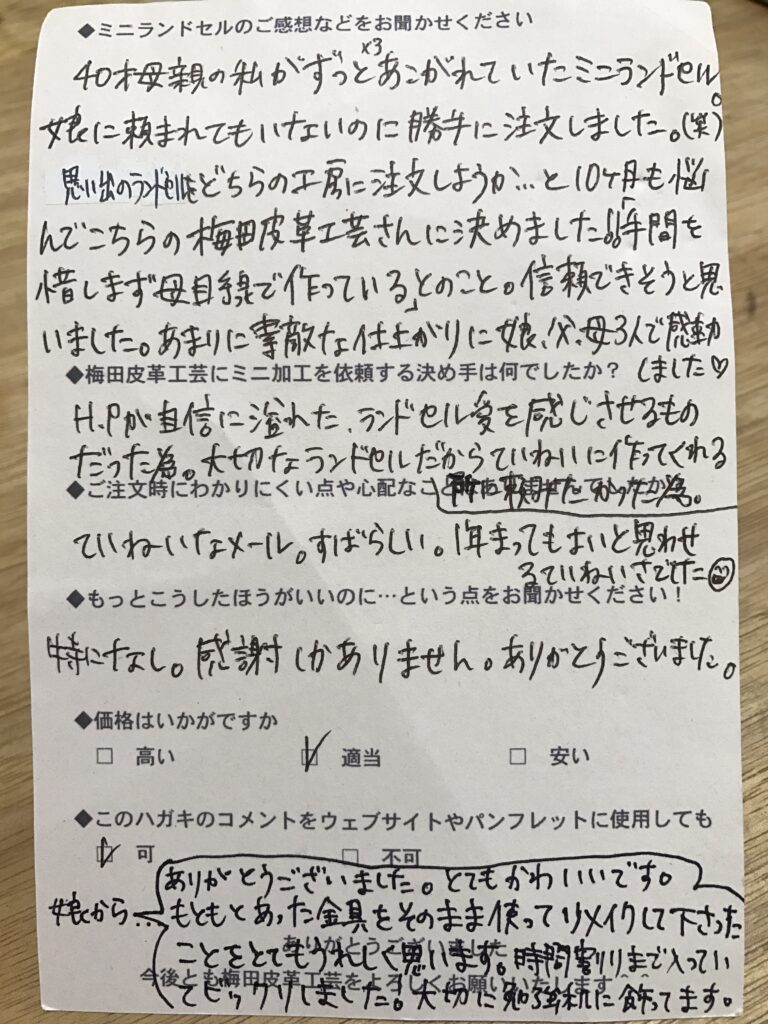 ◆ミニランドセルのご感想などをお聞かせください
×3
40才母親の私がずっとあこがれていたミニランドセル。
娘に頼まれてもいないのに勝手に注文しました。(笑)
思い出のランドセルをどちらの工房に注文しようか…と10ヶ月も悩
んでこちらの梅田皮革工芸さんに決めました!!「手間を
惜しまず母目線で作っている」とのこと。信頼できそうと思
いました。あまりに素敵な仕上がりに娘、父、母3人で感動
しました♡
◆梅田皮革工芸にミニ加工を依頼する決め手は何でしたか?
H.Pが自信に溢れた、ランドセル愛を感じさせるもの
だった為。大切なランドセルだからていねいに作ってくれる
所に頼みたかった為。
◆ご注文時にわかりにくい点や心配なこと
ていねいなメール。すばらしい。1年まってもよいと思わせ
るていねいさでした
◆もっとこうしたほうがいいのに…という点をお聞かせください!
特になし。感謝しかありません。ありがとうございました。
◆価格はいかがですか
□ 高い ☑ 適当 □ 安い
◆このハガキのコメントをウェブサイトやパンフレットに使用しても
☑ 可 □ 不可
娘から…
ありがとうございました。とてもかわいいです。
もともとあった金具をそのまま使ってリメイクして下さった
ことをとてもうれしく思います。時間割りまで入ってい
てビックリしました。大切に勉強机に飾ってます。
ありがとうございました
今後とも梅田皮革工芸をよろしくお願いいたします